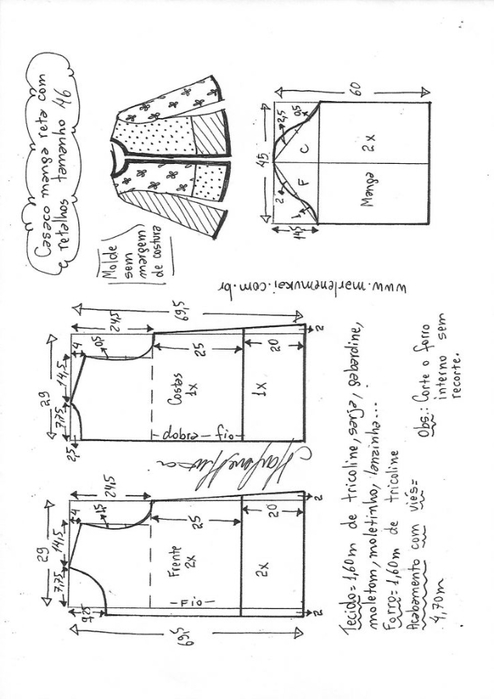 Casaco manga reta com
retalhos tamanho 46
Molde
sem
margem
de costura
60
45
2,5
0,5
C
2x
2
F
1
Manga
14,5
www.marlenemukai.com.br
69,5
24,5
29
14,5
4
0,5
7,75
2,5
Costas
1x
25
1x
20
fio
dobra
2
29
14,5
4
1,5
7,75
9,25
24,5
Frente
2x
25
2x
20
Fio
2
2
69,5
Tecido = 1,60m de tricoline, sarja, gabardine,
moletom, moletinho, lanzinha...
Forro = 1,60m de tricoline
Acabamento com viés =
4,70m
Obs.: Corte o forro
interno sem
recorte.